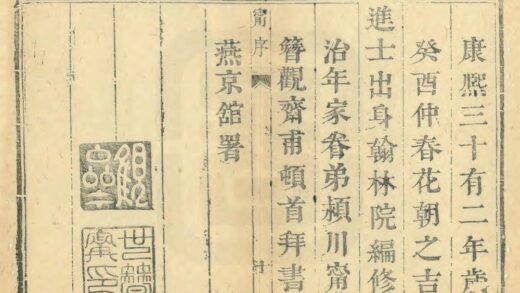 康熙三十有二年歲
癸酉仲春花朝之吉
進士出身翰林院編修
治年家眷弟潁川甯
世簪觀齋甫頓首拜書
甯序
燕京舘署
世簪
甯印